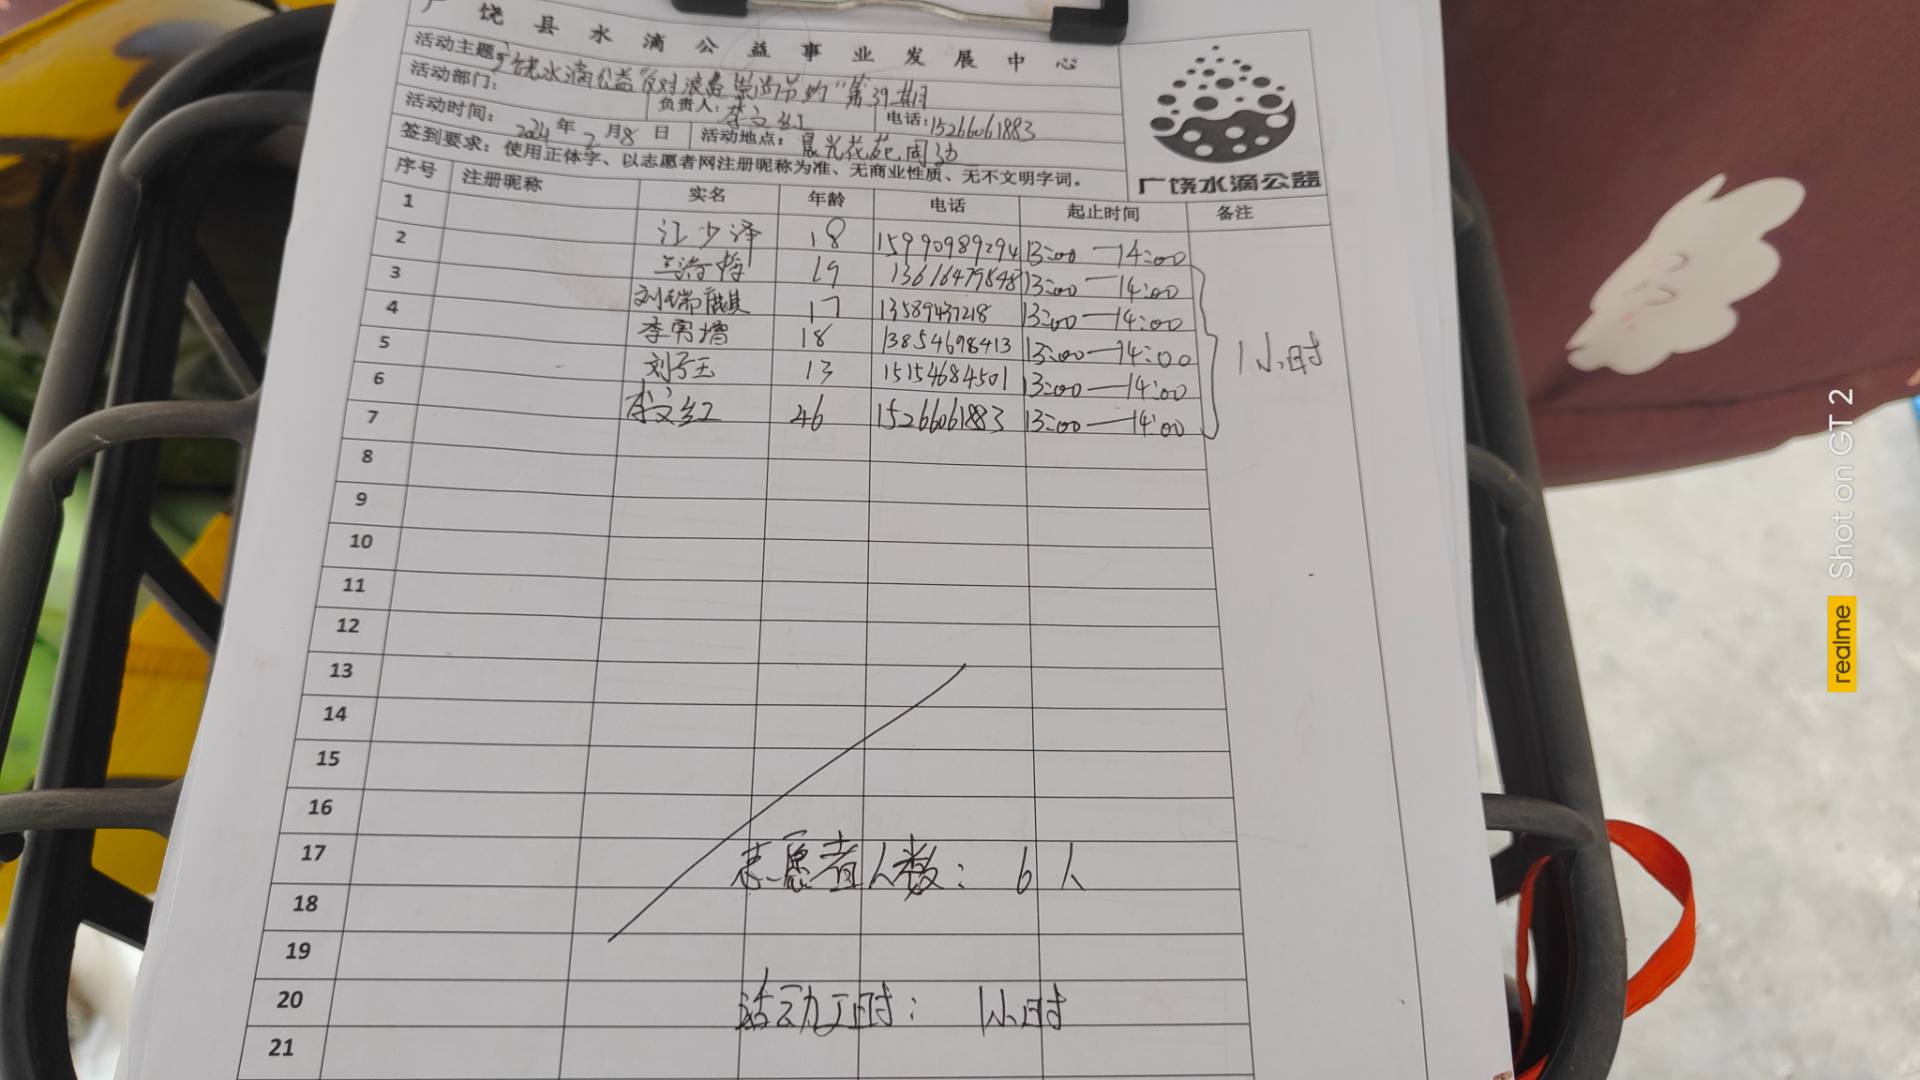 广饶县水滴公益事业发展中心
活动主题:广饶水滴公益"反对浪费 崇尚节约"第39期
活动部门: 负责人:李文红 电话:15266061883
活动时间: 2024年2月8日 活动地点: 晨光花苑周边
签到要求: 使用正体字、以志愿者网注册昵称为准、无商业性质、无不文明字词。
广饶水滴公益
序号 注册昵称 实名 年龄 电话 起止时间 备注
1 江少泽 18 15990989294 13:00—14:00
2 19 13616479848 13:00—14:00
3 刘瑞麒 17 13589437218 13:00—14:00
4 李 增 18 13854698413 13:00—14:00
5 刘 玉 13 15154684501 13:00—14:00
6 李文红 46 15266061883 13:00—14:00
1小时
7
8
9
10
11
12
13
14
15
16
17 志愿者人数: 6人
18
19
20 活动工时: 1小时
21
realme Shot on GT 2